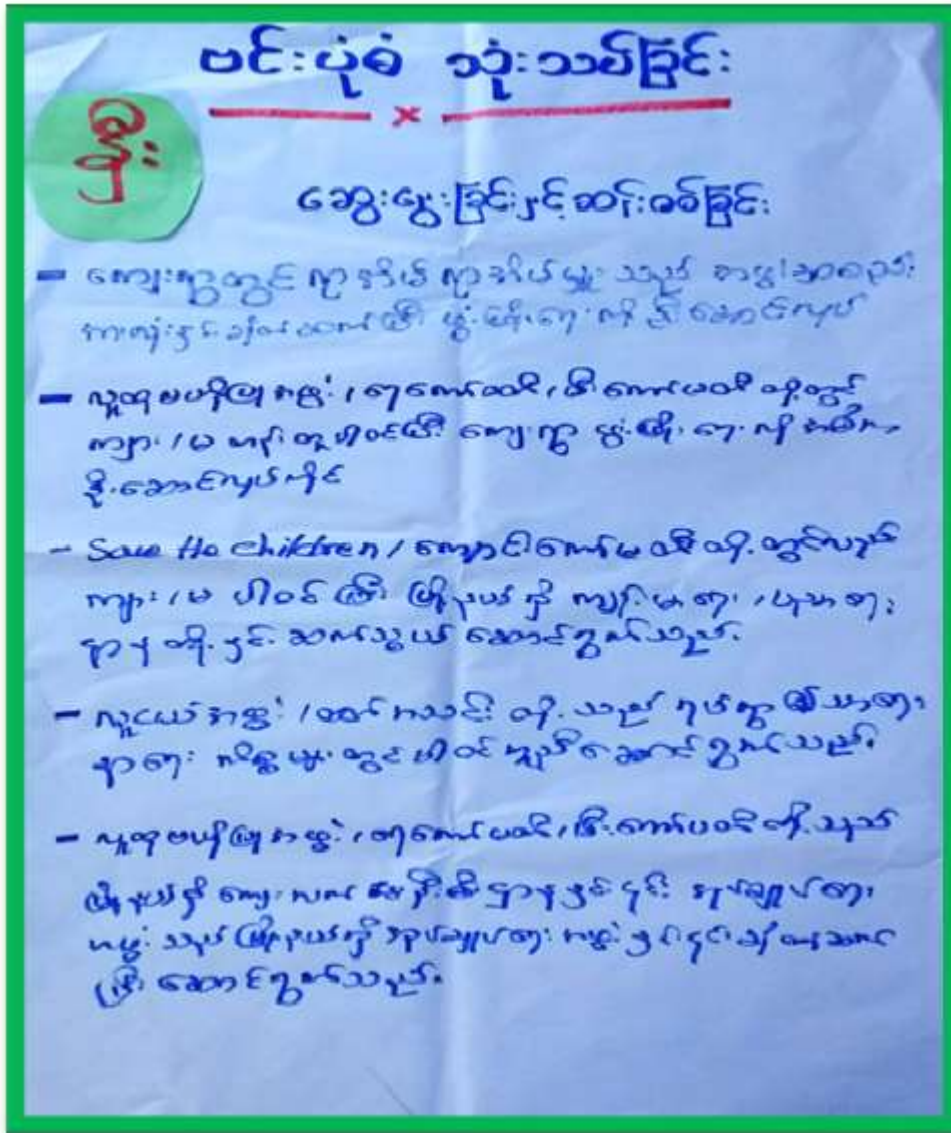 ဗင်းပုံစံ သုံးသပ်ခြင်း
ဆွေးနွေးခြင်းနှင့်ဆန်းစစ်ခြင်း
- ကျေးရွာတွင် ရာအိမ် ရာအိမ်မှူး သည် အဖွဲ့အစည်း
အားလုံးနှင့်ချိတ်ဆက်ပြီး ဖွံ့ဖြိုးရေးကို ဆောင်လုပ်
- လူထုဗဟိုပြုအဖွဲ့ / ရေကော်မတီ / မီးကော်မတီ တို့တွင်
ကျား / မ ပါဝင်ပြီး ကျေးရွာ ဖွံ့ဖြိုးရေးကို
ဦးဆောင်လုပ်ကိုင်
- Save the children / ကျောင်းကော်မတီ တို့တွင်လည်း
ကျား / မ ပါဝင်ပြီး မြို့နယ်ရှိ ကျန်းမာရေး / ပညာရေး
ဌာနတို့နှင့် ဆက်သွယ် ဆောင်ရွက်သည်.
- လူငယ်အဖွဲ့ / ဘတ်အသင်း တို့သည် ရပ်ရွာ သာရေး
နာရေး ကိစ္စများတွင် ပါဝင်ကူညီဆောင်ရွက်သည်.
- လူထုဗဟိုပြုအဖွဲ့ / ရေကော်မတီ / မီးကော်မတီတို့သည်
မြို့နယ်ရှိ ကျေးလက် ဦးစီးဌာနနှင့်၎င်း အုပ်ချုပ်ရေး
အဖွဲ့ သည် မြို့နယ်ရှိ အုပ်ချုပ်ရေး အဖွဲ့နှင့်၎င်းချိတ်ဆက်
ပြီး ဆောင်ရွက်သည်.